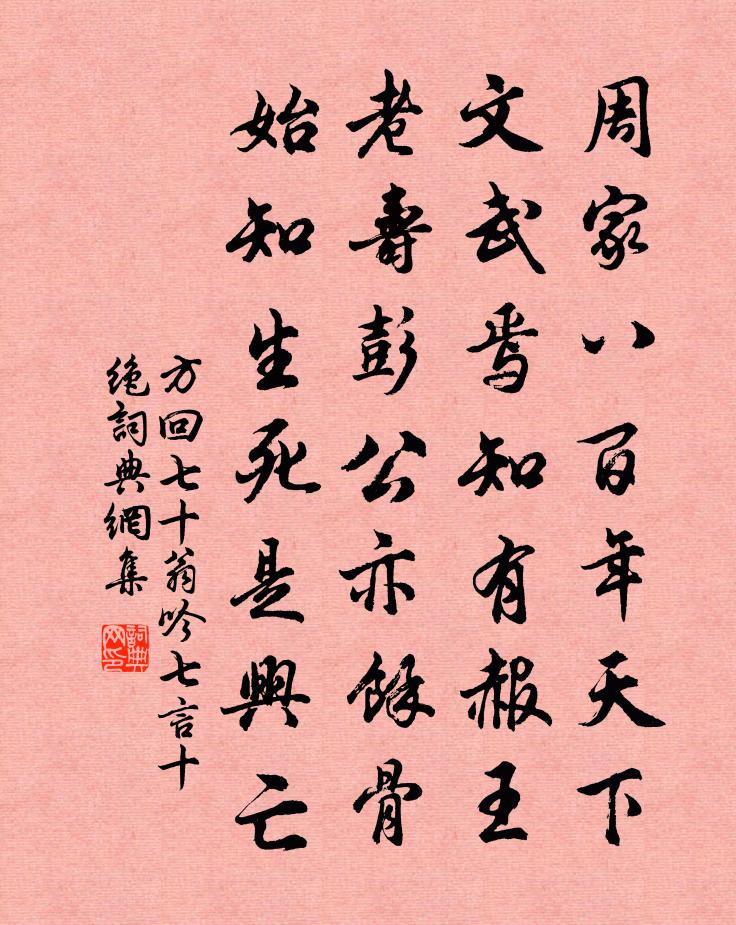 周家八百年天下
文武焉知有赧王
老壽彭公亦餘骨
始知生死是興亡
方回七十翁吟七言十
絶詞典網集
詞典网印